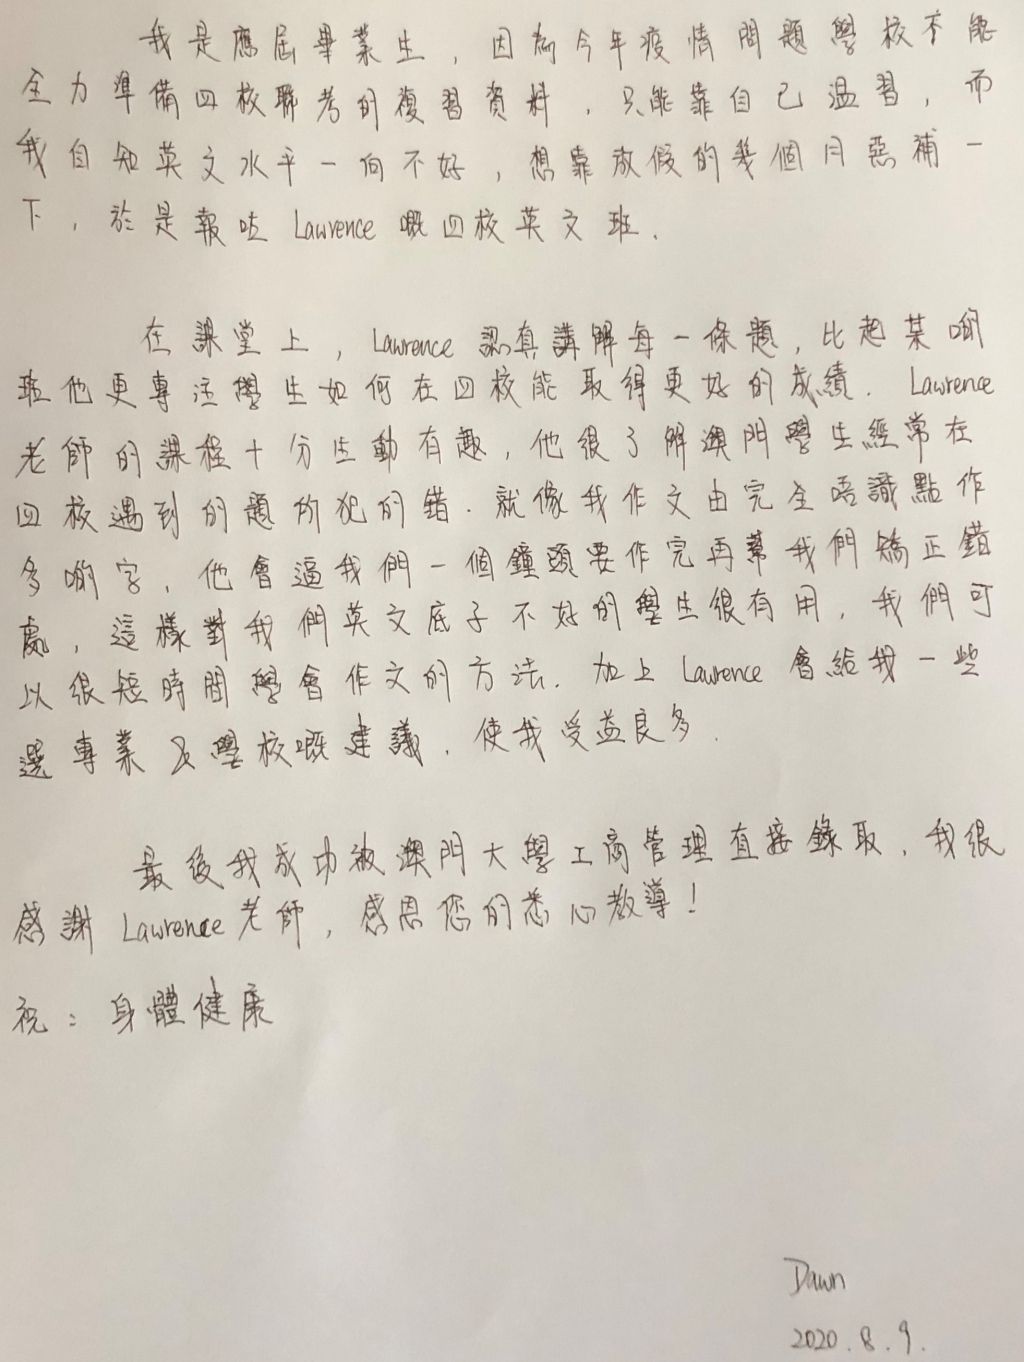 我是應屆畢業生，因為今年疫情問題學校不能
全力準備四校聯考的複習資料，只能靠自己溫習，而
我自知英文水平一向不好，想靠放假的幾個月惡補一
下，於是報咗 Lawrence 嘅四校英文班.
在課堂上，Lawrence 認真講解每一條題，比起某啲
班他更專注學生如何在四校能取得更好的成績. Lawrence
老師的課程十分生動有趣，他很了解澳門學生經常在
四校遇到的題所犯的錯. 就像我作文由完全唔識點作
多啲字，他會逼我們一個鐘頭要作完再幫我們矯正錯
處，這樣對我們英文底子不好的學生很有用，我們可
以很短時間學會作文的方法. 加上 Lawrence 會給我一些
選專業及學校嘅建議，使我受益良多.
最後我成功被澳門大學工商管理直接錄取，我很
感謝 Lawrence 老師，感恩您的悉心教導！
祝：身體健康
Dawn
2020.8.9.